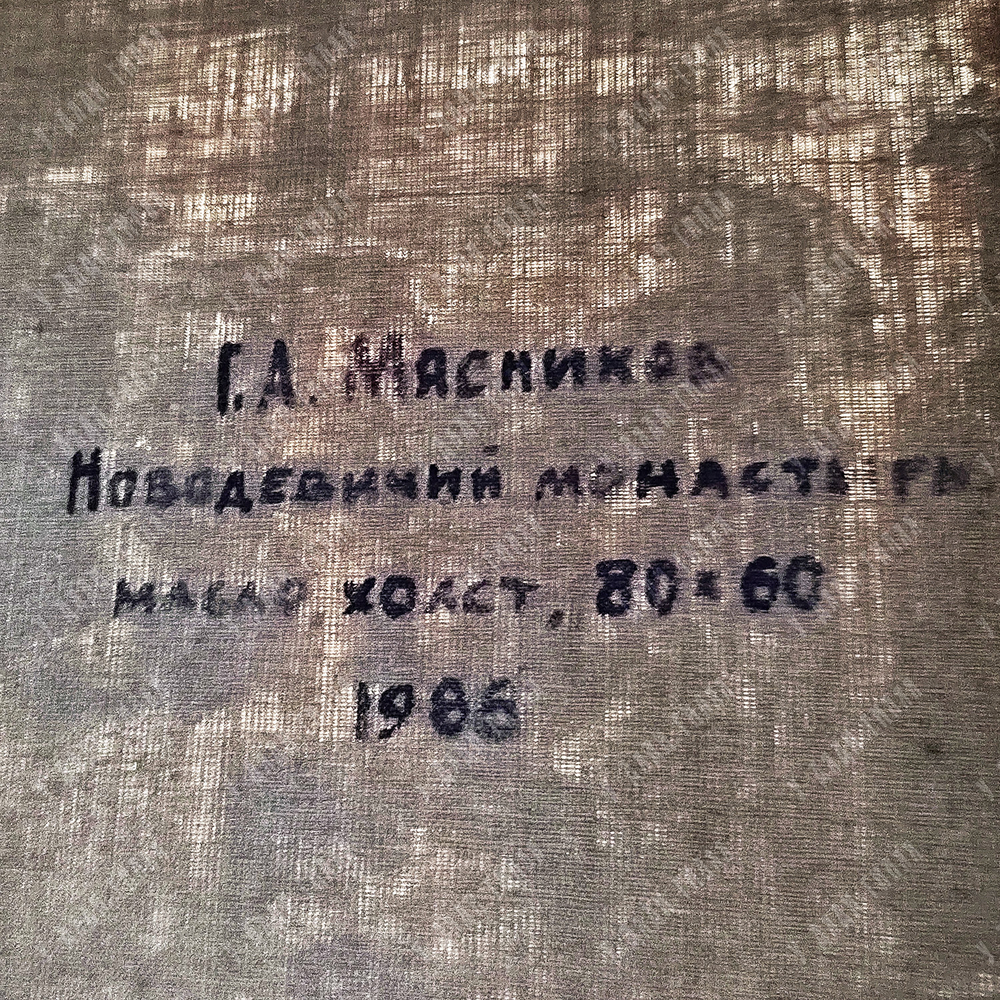 Г.А. Мясников
Новодевичий монастырь
масло, холст, 80×60
1986